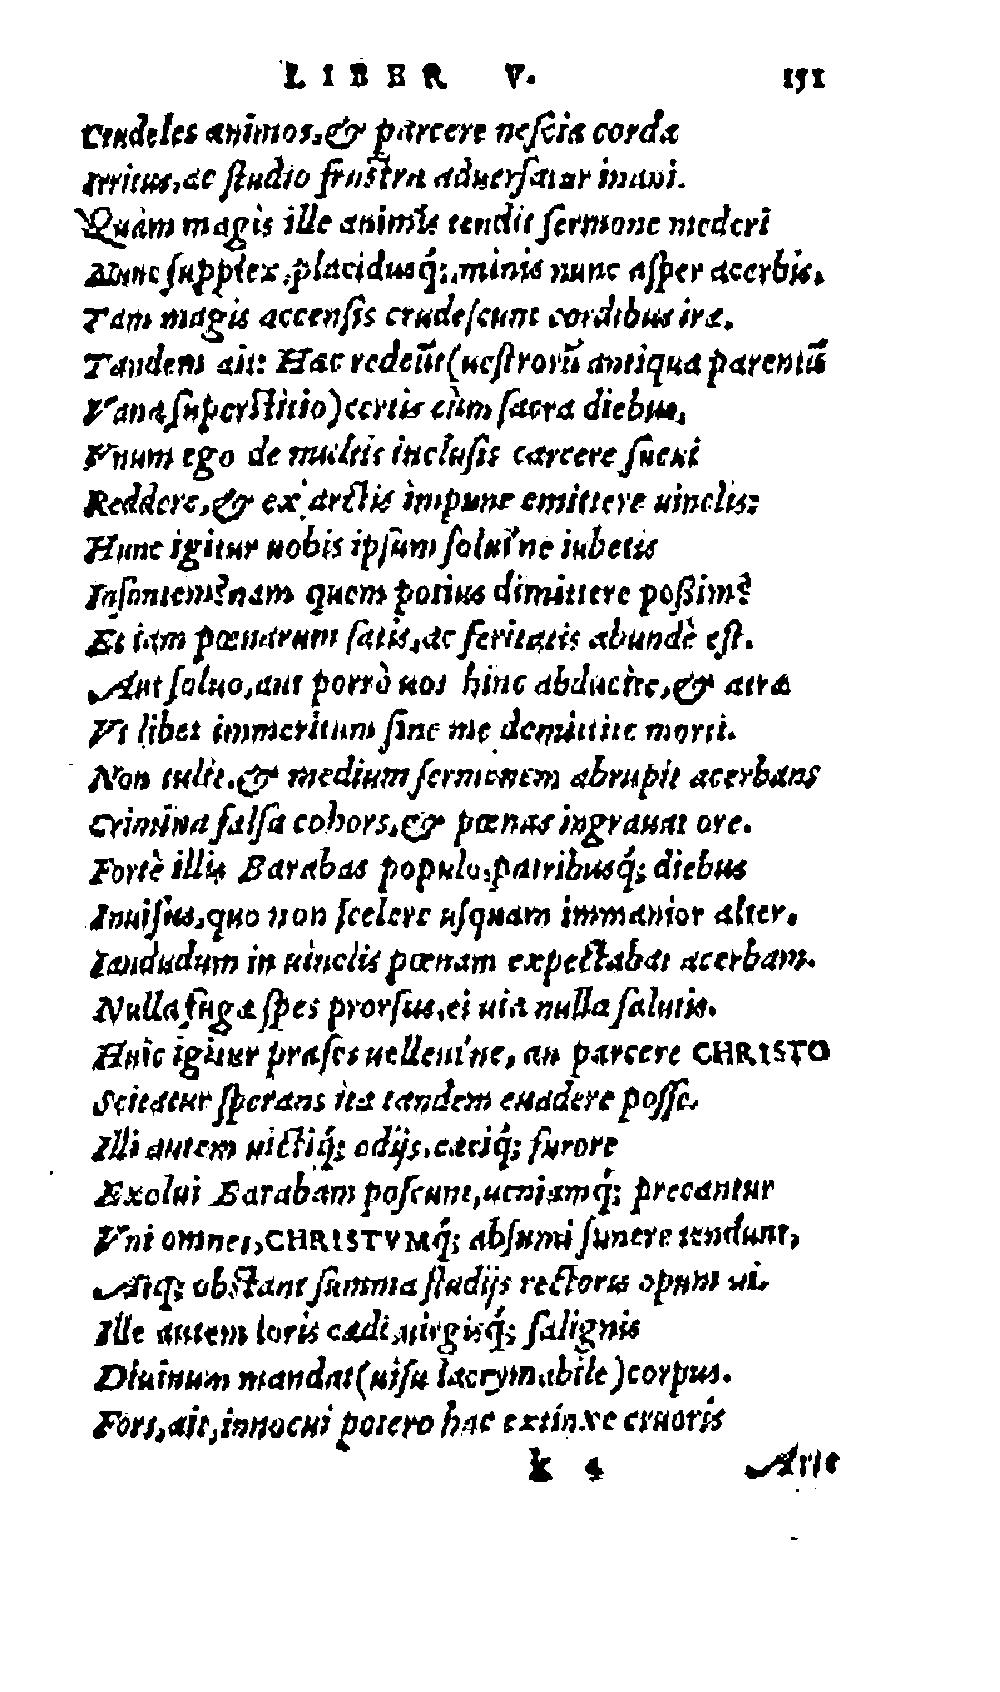 LIBER V. 151
Crudeles animos, & parcere neſcia corda
Irritus, ac ſtudio fruſtra aduerſatur inani.
Quàm magis ille animis tendit ſermone mederi
Nunc ſupplex, placidusq́;, minis nunc aſper acerbis,
Tam magis accenſis crudeſcunt cordibus iræ.
Tandem ait: Hac redeũt (ueſtrorũ antiqua parentũ
Vana ſuperſtitio) certis cùm ſacra diebus,
Vnum ego de multis incluſis carcere ſueui
Reddere, & ex arctis impune emittere uinclis:
Hunc igitur uobis ipſum ſolui'ne iubetis
Inſontem? nam quem potius dimittere poßim?
Et iam pœnarum ſatis, ac feritatis abundè eſt.
Aut ſoluo, aut porrò uos hinc abducite, & atræ
Vt libet immeritum ſine me demittite morti.
Non tulit, & medium ſermonem abrupit acerbans
Crimina falſa cohors, & pœnas ingrauat ore.
Fortè illis Barabas populo, patribusq́; diebus
Inuiſus, quo non ſcelere uſquam immanior alter,
Iandudum in uinclis pœnam expectabat acerbam.
Nulla fugæ ſpes prorſus, ei uia nulla ſalutis.
Huic igitur præſes uellent'ne, an parcere CHRISTO
Scitatur ſperans ita tandem euadere poſſe.
Illi autem uictiq́; odijs, cæciq́; furore
Exolui Barabam poſcunt, ueniamq́; precantur
Vni omnes, CHRISTVMq́; abſumi funere tendunt,
Atq; obſtant ſumma ſtudijs rectoris opum ui.
Ille autem loris cædi, uirgisq́; ſalignis
Diuinum mandat (uiſu lacrymabile) corpus.
Fors, ait, innocui potero hac extinxe cruoris
k 4 Arte